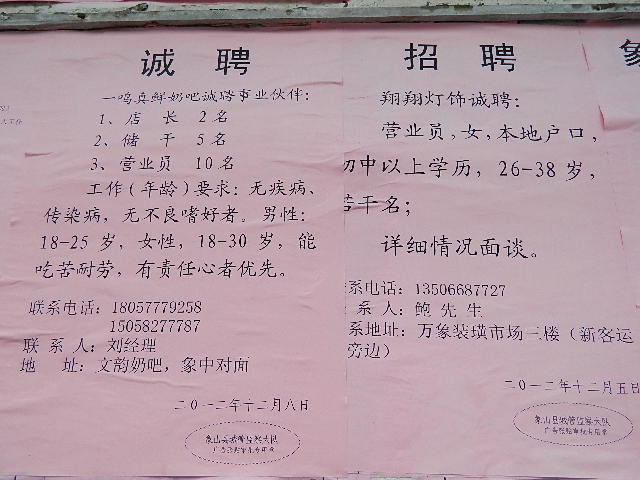 诚 聘
一鸣真鲜奶吧诚聘事业伙伴：
1、店 长 2名
2、储 干 5名
3、营业员 10名
工作（年龄）要求：无疾病、
传染病，无不良嗜好者。男性：
18-25岁，女性，18-30岁，能
吃苦耐劳，有责任心者优先。
联系电话：18057779258
15058277787
联 系 人：刘经理
地 址：文韵奶吧，象中对面
二○一二年十二月八日
象山县城管监察大队
招 聘
翔翔灯饰诚聘：
营业员，女，本地户口，
初中以上学历，26-38岁，
若干名；
详细情况面谈。
系电话：13506687727
系 人：鲍 先 生
系地址：万象装璜市场三楼（新客运
旁边）
二○一二年十二月五日
象山县城管监察大队